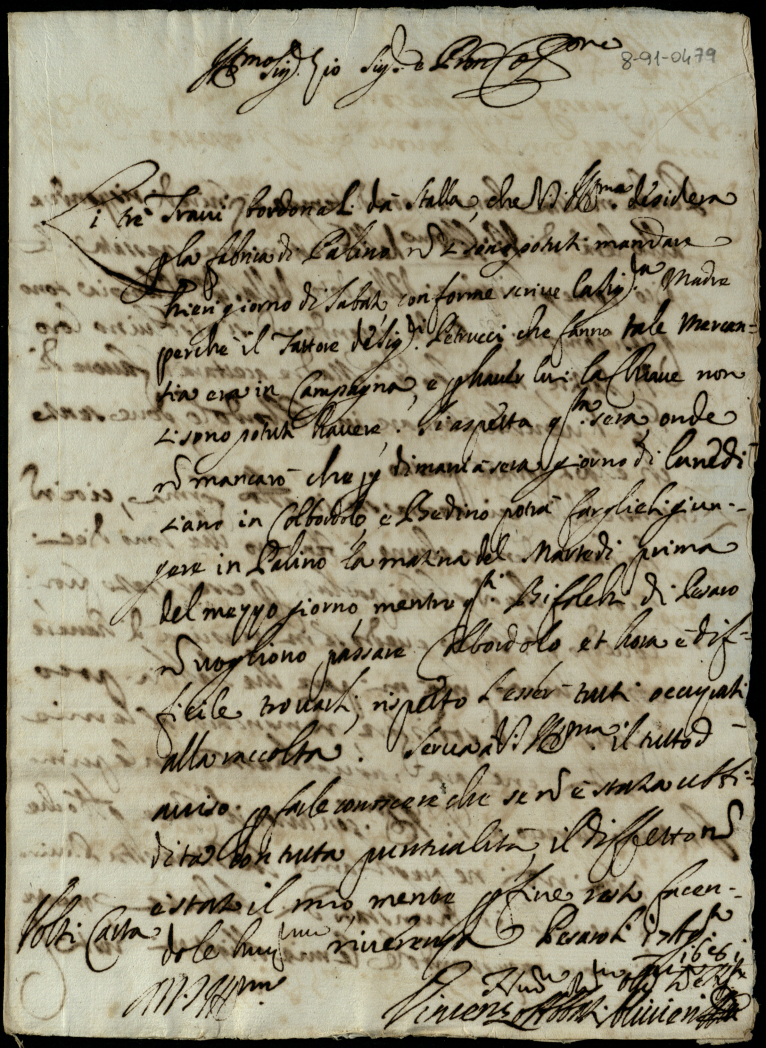 Ill.mo Sig.r Zio Sig.r e Pron Col.mo
8-91-0479
Li tre Travi bordonali da stalla, che V.S. Ill.ma desidera
p la fabrica di Palino nõ si sono potuti mandare
hieri giorno di Sabato conforme scrive la Sig.ra Madre
perche il Fattore de Sig.ri Petrucci che fanno tale Mercan-
tia era in Campagna, e p haver lui la Chiave non
si sono potuti havere, si aspetta q.sta sera, onde
nõ mancarò che p dimani a sera giorno di Lunedi
siano in Colbordolo, e Bedino potrà farglieli giun-
gere in Palino la matina del Martedi prima
del mezzo giorno, mentre q.sti Bifolchi di Pesaro
nõ vogliono passare Colbordolo et hora è dif-
ficile trovarli, rispetto l'esser tutti occupati
alla raccolta. Serva a V.S. Ill.ma il tutto d
aviso p farle conoscere che se nõ è stata ubbi-
dita con tutta puntualità, il diffetto nõ
è stato il mio mentre p fine resto facen-
dole hum.ma riverenza Pesaro li
Volti Carta
V.S. Ill.ma